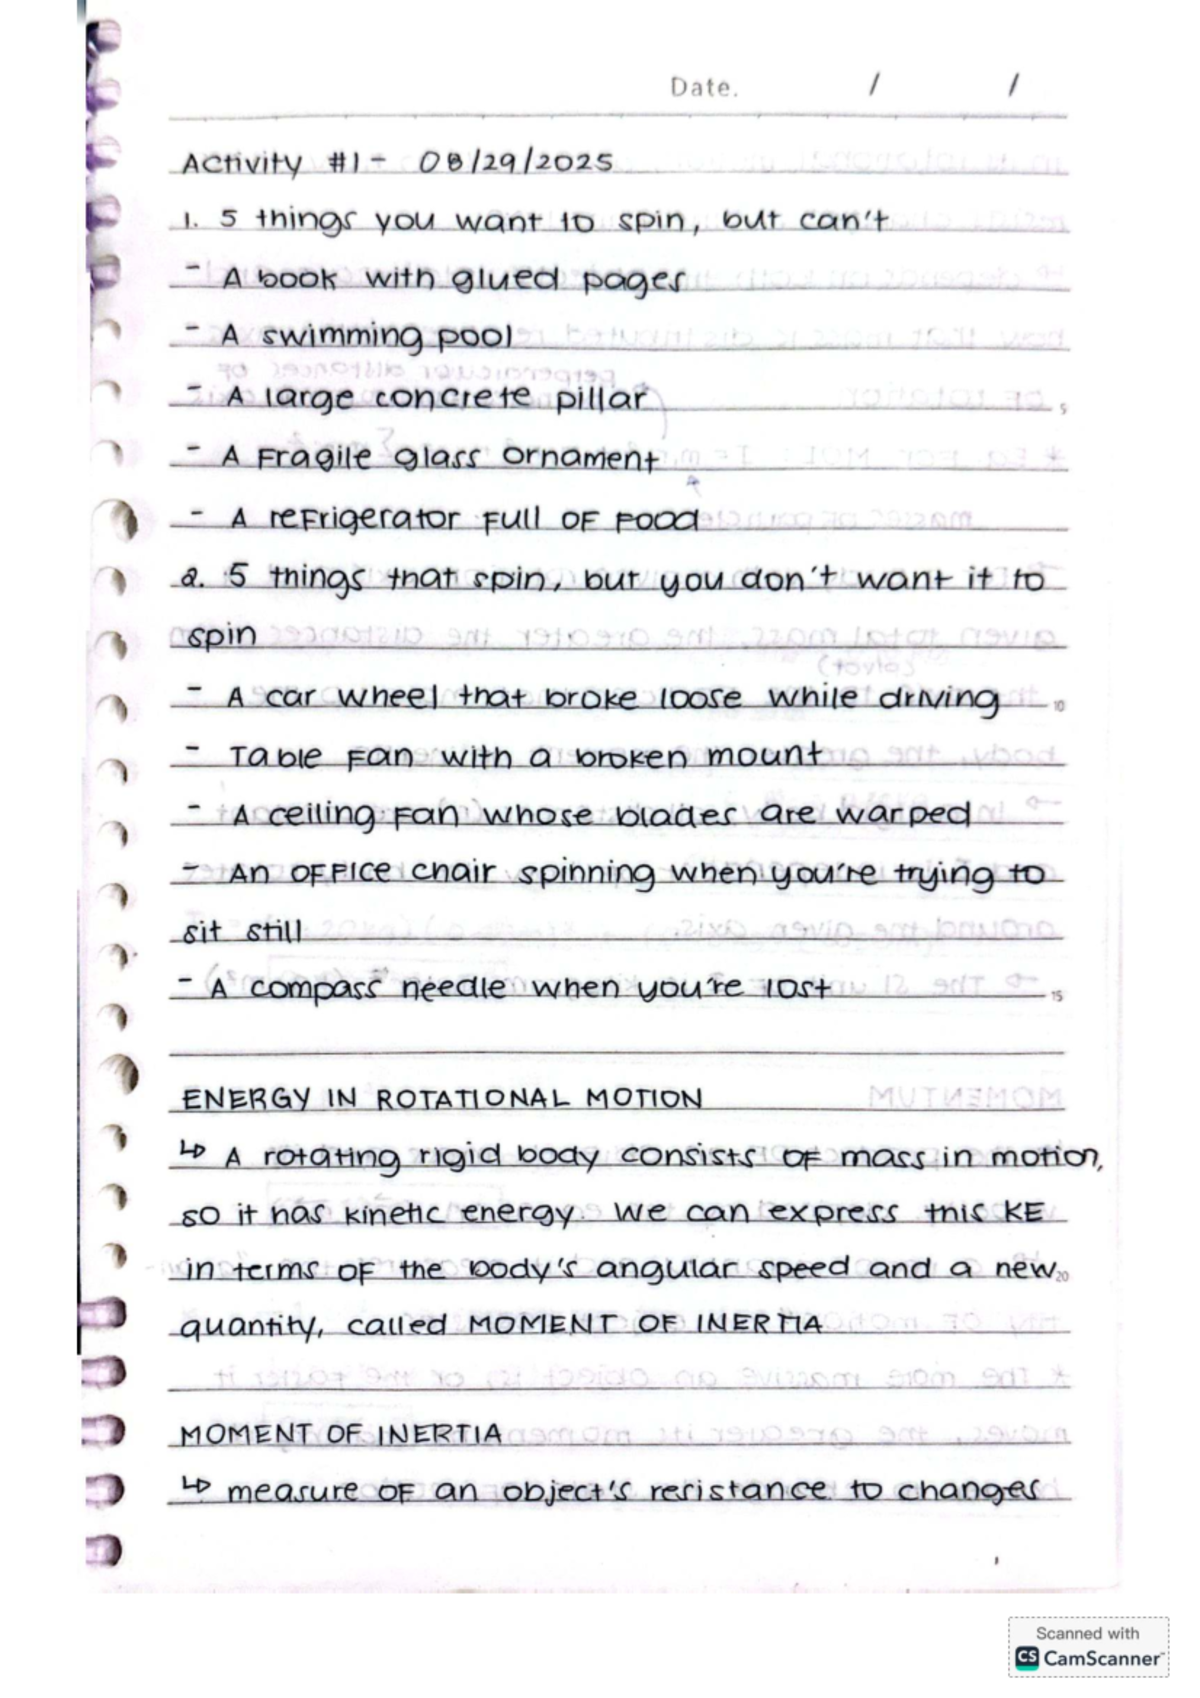 Date. / /
Activity #1 - 08/29/2025
1. 5 things you want to spin, but can't
- A book with glued pages
- A swimming pool
- A large concrete pillar
5
- A Fragile glass ornament
- A refrigerator full of food
2. 5 things that spin, but you don't want it to
spin
- A car wheel that broke loose while driving
10
- Table Fan with a broken mount
- A ceiling fan whose blades are warped
- An office chair spinning when you're trying to
sit still
- A compass needle when you're lost
15
ENERGY IN ROTATIONAL MOTION
↳ A rotating rigid body consists of mass in motion,
so it has kinetic energy. We can express this KE
in terms of the body's angular speed and a new
20
quantity, called MOMENT OF INERTIA
MOMENT OF INERTIA
↳ measure of an object's resistance to changes
Scanned with
CS CamScanner